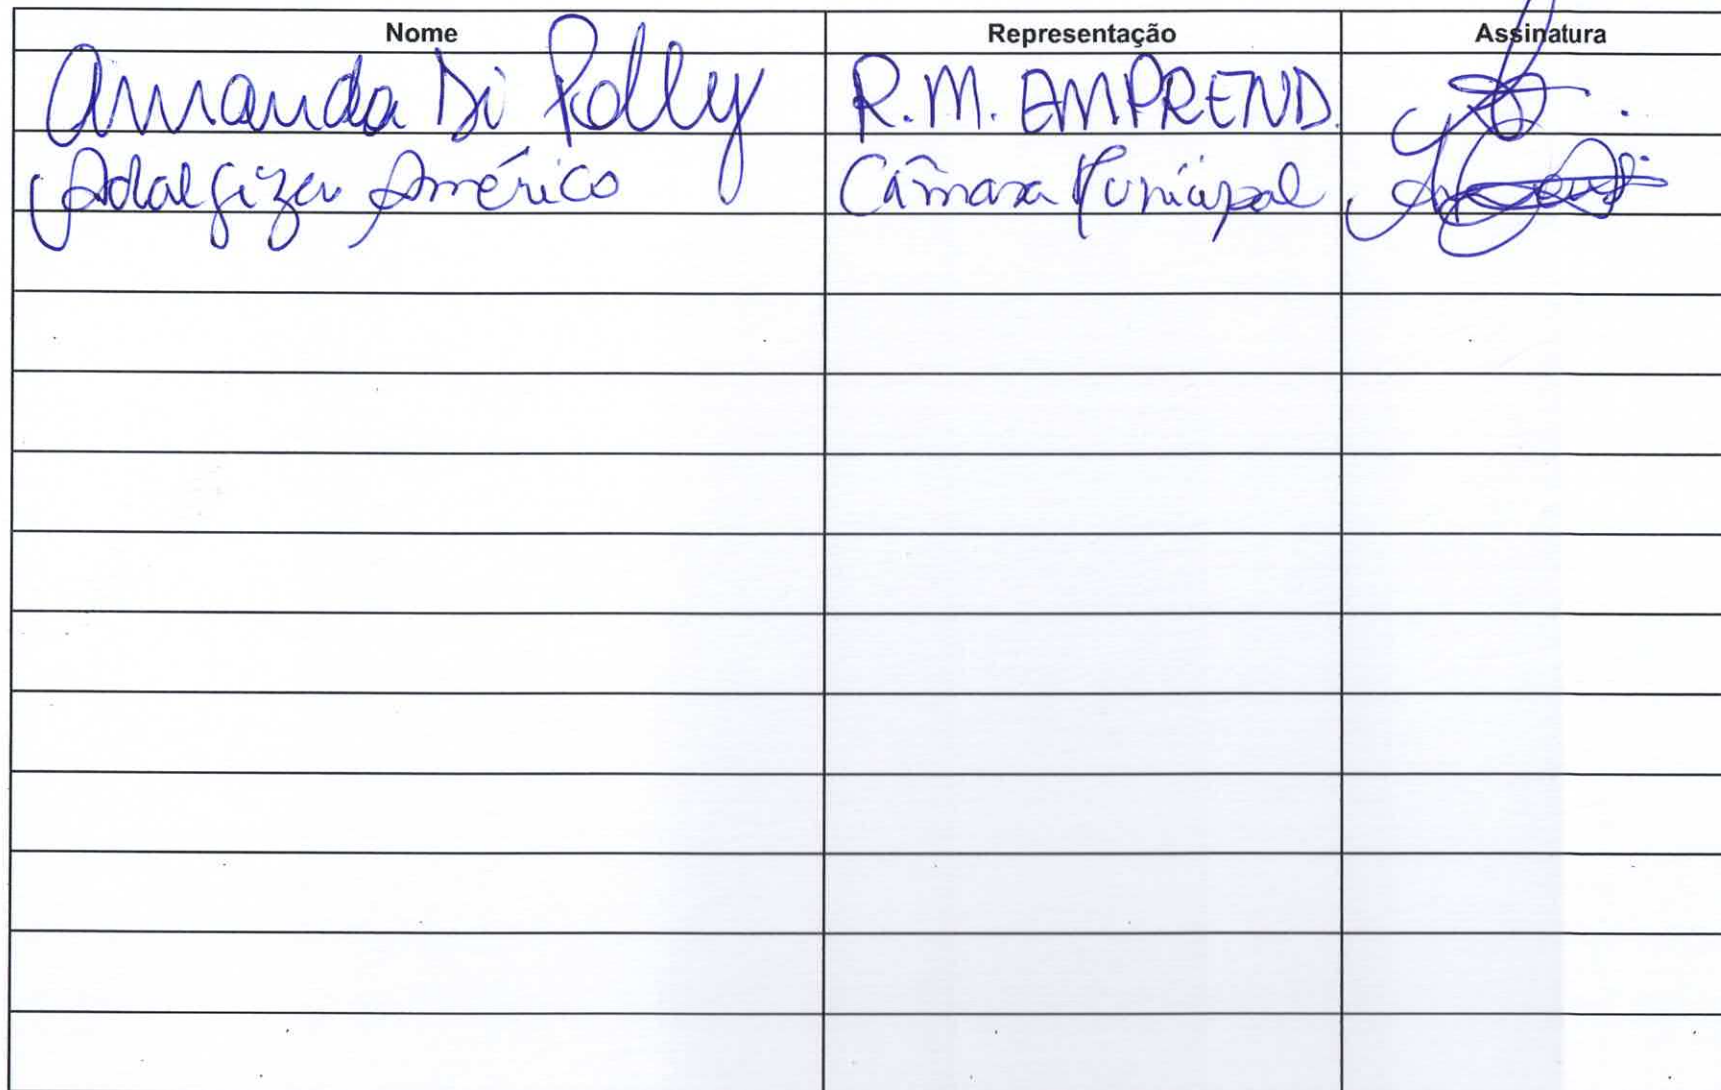 Nome Representação Assinatura
Amanda Di Polly R.M. EMPREND.
Adalgiza Américo Câmara Municipal